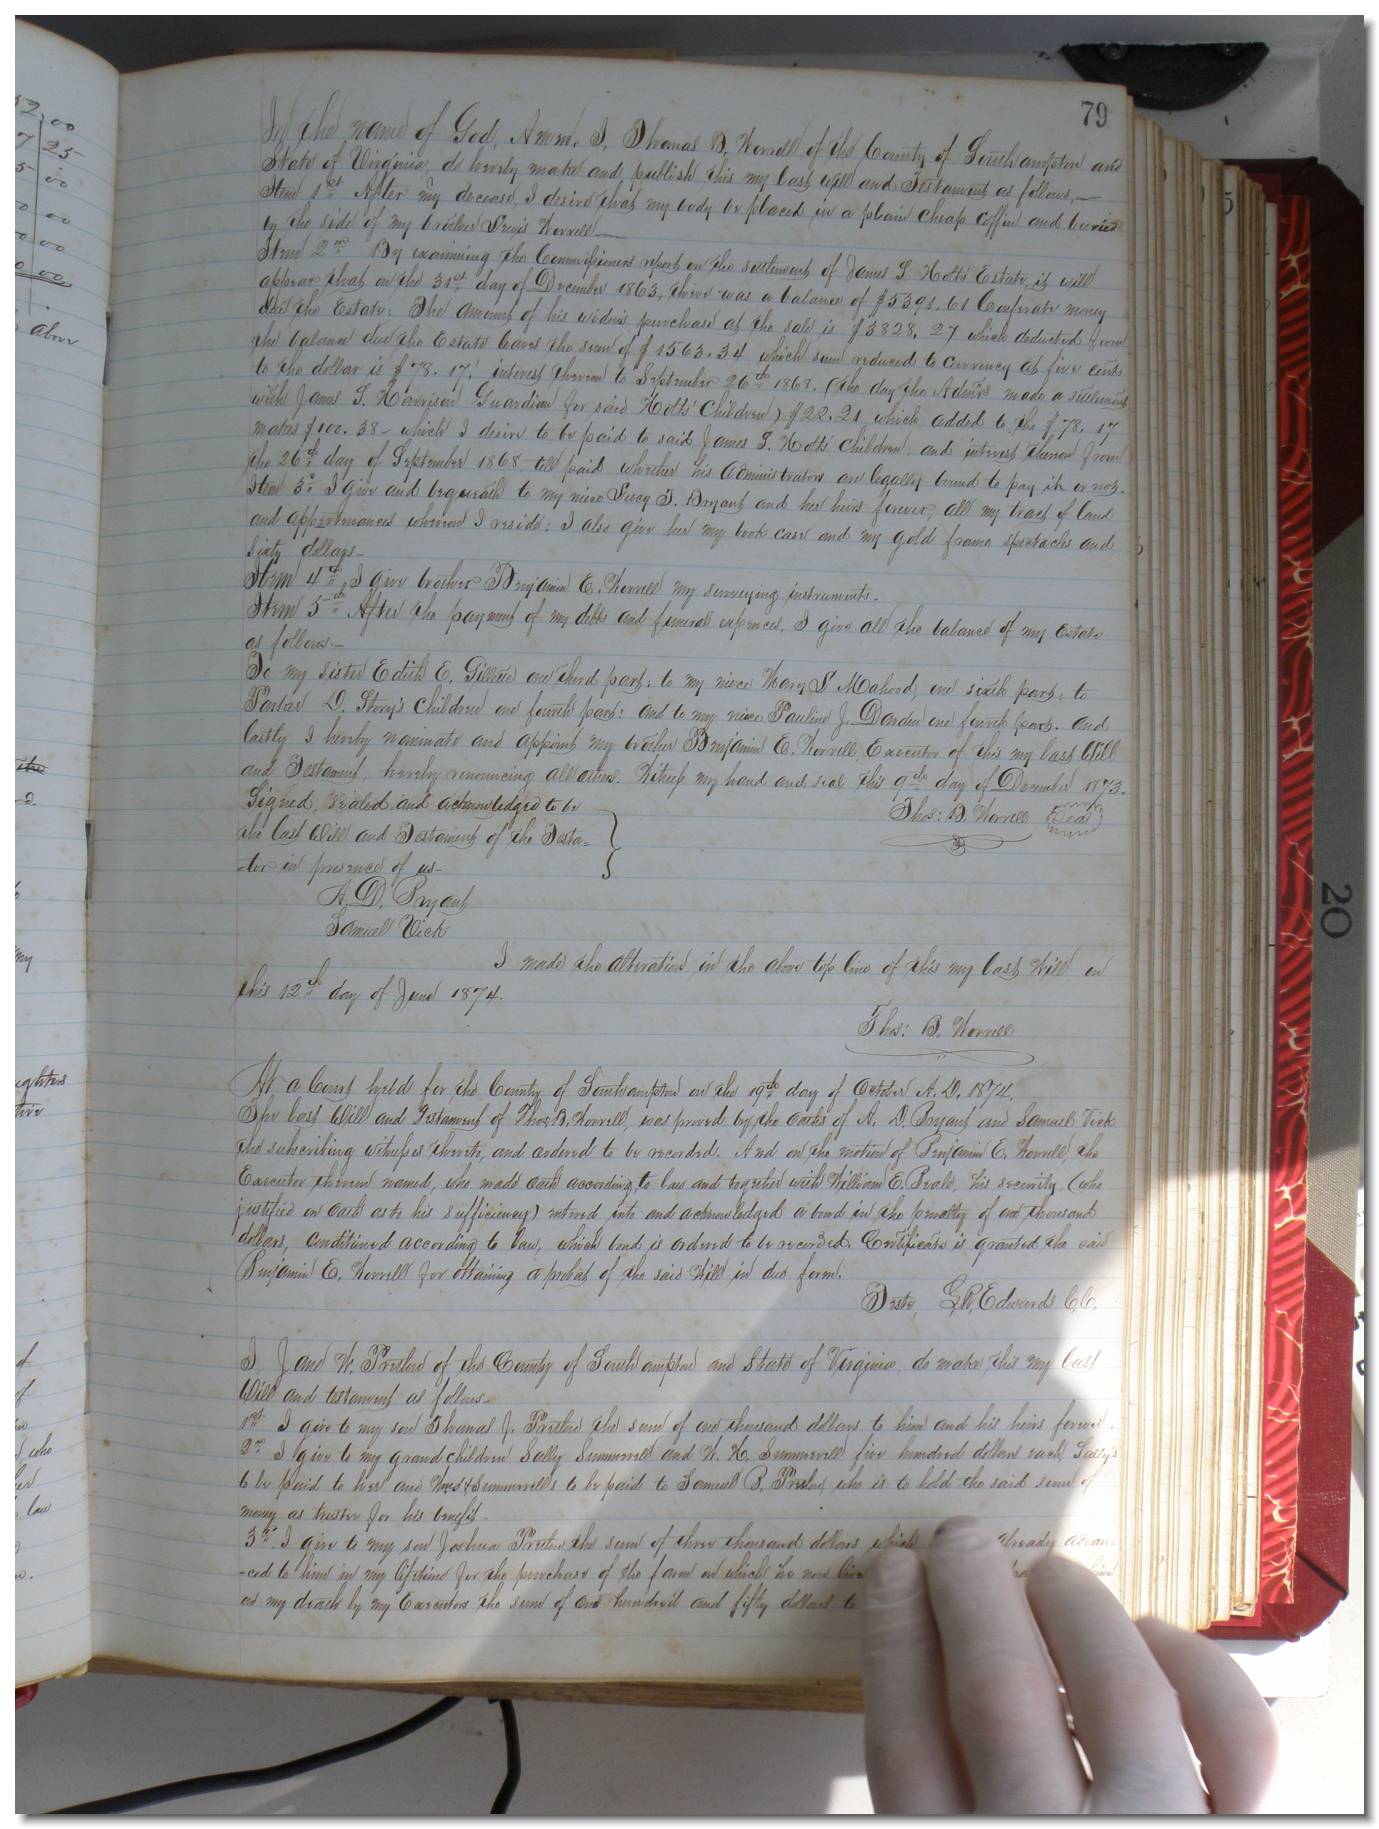 79
In the name of God, Amen. I, Thomas B. Worrell of the County of Southampton and
State of Virginia, do hereby make and publish this my last Will and Testament as follows,—
Item 1st After my decease, I desire that my body be placed in a plain cheap coffin and buried
by the side of my brother Worrell—
Item 2nd By examining the Commissioners report on the settlement of James S Holts Estate, it will
appear that on the 31st day of December 1863, there was a balance of $5391.61 Confederate money
due the Estate: The amount of his widows purchase at the sale is $3828.27 which deducted from
the balance due the Estate leaves the sum of $1563.34 which sum reduced to currency at five cents
to the dollar is $78.17. interest thereon to September 26th 1868. (the day the Admrs made a settlement
with James S. Harrison Guardian for said Holts' Children) $22.21 which added to the $78.17
makes $100.38— which I desire to be paid to said James S. Holts' children, and interest thereon from
the 26th day of September 1868 till paid whether his administrators are legally bound to pay it or not.
Item 3d I give and bequeath to my niece Lucy S. Bryant and her heirs forever, all my tract of land
and appurtenances whereon I reside: I also give her my book case and my gold frame spectacles and
Sixty dollars—
Item 4th, I give brother Benjamin E. Worrell my surveying instruments.
Item 5th After the payment of my debts and funeral expences, I give all the balance of my Estate
as follows.—
To my sister Edith E. Gillette one third part: to my niece Mary S Mahood, one sixth part: to
Parker D. Story's Children one fourth part: and to my niece Pauline J. Darden one fourth part. and
lastly I hereby nominate and appoint my brother Benjamin E. Worrell, Executor of this my last Will
and Testament, hereby renouncing all others. Witness my hand and seal this 9th day of December 1873.
Signed, sealed and acknowledged to be
Thos: B. Worrell Seal
the last Will and Testament of the Testa-
-tor in presence of us—
A. D. Bryant
Samuel Vick
I made the alteration in the above top line of this my last Will on
this 12th day of June 1874.
Thos: B. Worrell
At a Court held for the County of Southampton on the 19th day of October A. D. 1874.
The last Will and Testament of Thos B. Worrell, was proved by the oaths of A. D. Bryant and Samuel Vick
the subscribing witnesses thereto, and ordered to be recorded. And on the motion of Benjamin E. Worrell, the
Executor therein named, who made oath according to law and together with William E. Beale, his security, (who
justified on oath as to his sufficiency) entered into and acknowledged a bond in the penalty of one thousand
dollars, conditioned according to law, which bond is ordered to be recorded. Certificate is granted the said
Benjamin E. Worrell for obtaining a probat of the said Will in due form.
Teste, L. R. Edwards C.C.
I Jane W. Pretlow of the County of Southampton and State of Virginia, do make this my last
Will and testament as follows—
1st I give to my son Thomas J. Pretlow the sum of one thousand dollars to him and his heirs forever.
2nd I give to my grandchildren Sally Summerell and W. H. Summerell five hundred dollars each, Sally's
to be paid to her and Summerell's to be paid to Samuel B. Pretlow, who is to hold the said sum of
money as trustee for his benefit—
3rd. I give to my son Joshua Pretlow the sum of three thousand dollars which already advan-
-ced to him in my lifetime for the purchase of the farm on which he now
at my death by my Executors the sum of one hundred and fifty dollars to
52.00
7 25
5 00
00
00
00
above
the
my
ughters
tive
of
who
her
law
5
20